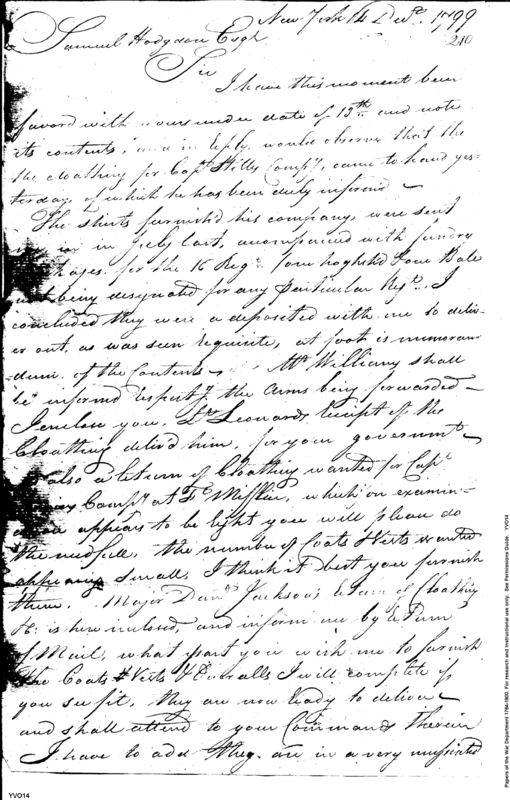 New York 14 Decr. 1799
210
Samuel Hodgdon Esqr
Sir
I have this moment been
favord with yours under date of 13th and note
its contents, and in reply, would observe that the
the cloathing for Capt Stilles Compy, came to hand yes-
terday, of which he has been duly informd
The shirts furnish'd his company, were sent
in July last, accompanied with sundry
for the 16 Regt. four hogshd four Bale
not being designated for any particular Regt. I
concluded they were a deposited with me to deliv-
er out, as was seen requisite, at foot is memoran-
-dum of the Contents Mr Williams shall
be informd respectg the Arms being forwarded
I enclose you, Lt Leonards receipt of the
Cloathing deliv'd him, for your governmt
also a return of Cloathing wanted for Capt
Compy at Ft Mifflin, which on examin-
appears to be light you will please do
the needfull, the number of Coats & Vests wanted
appearing small, I think it best you furnish
them. Major Danl Jackson's return of Cloathing
&c is here inclosed, and inform me by return
of Mail, what part you wish me to furnish
the Coats & Vests & Overalls I will complete if
you see fit, they are now ready to deliver
and shall attend to your Commands therein
I have to add they are in a very
YVO14
Papers of the War Department 1784-1800. For research and instructional use only. See Permissions Guide. YVO14